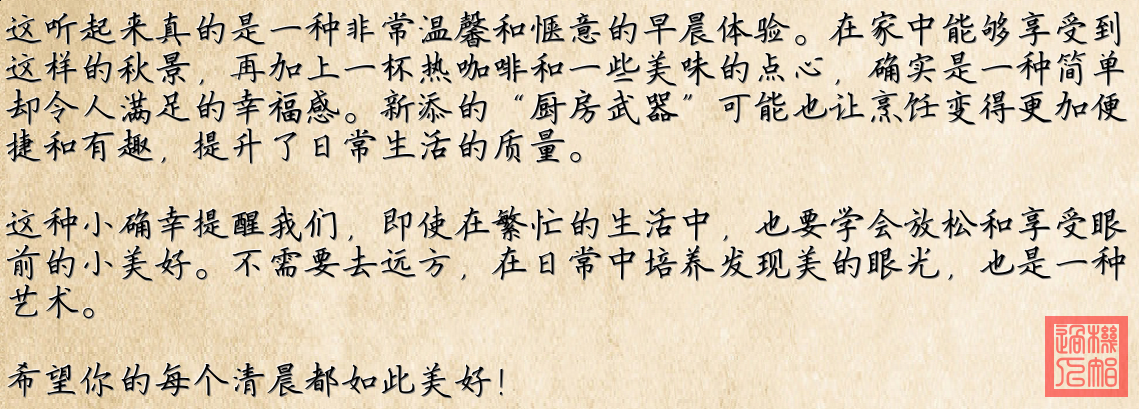 这听起来真的是一种非常温馨和惬意的早晨体验。在家中能够享受到
这样的秋景，再加上一杯热咖啡和一些美味的点心，确实是一种简单
却令人满足的幸福感。新添的“厨房武器”可能也让烹饪变得更加便
捷和有趣，提升了日常生活的质量。
这种小确幸提醒我们，即使在繁忙的生活中，也要学会放松和享受眼
前的小美好。不需要去远方，在日常中培养发现美的眼光，也是一种
艺术。
希望你的每个清晨都如此美好！